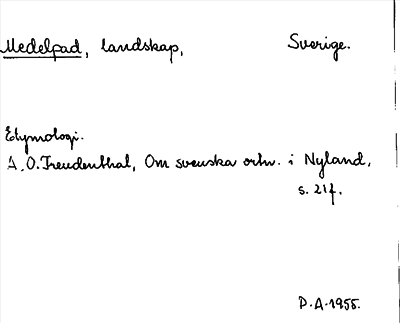 Medelpad, landskap, Sverige.
Etymologi.
A.O.Freudenthal, Om svenska ortn. i Nyland,
s. 21f.
D.A.1955.